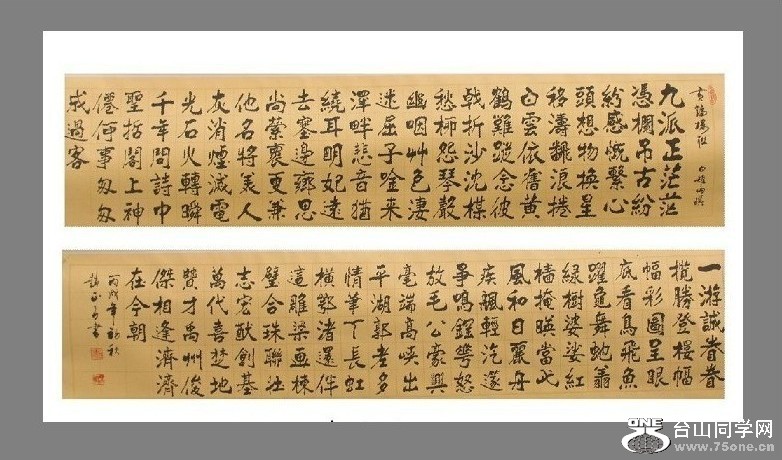 九派正茫茫
憑欄吊古紛
紛感慨繫心
頭想物換星
移濤飜浪捲
白雲依舊黃
鶴難蹤念彼
戟折沙沈楳
愁柳怨琴聲
幽咽艸色淒
迷屈子唫來
澤畔悲音猶
繞耳明妃遠
去塞邊鄉思
尚縈裹更兼
他名將美人
灰消煙滅電
光石火轉瞬
千年間詩中
聖哲閣上神
僊何事匆匆
成過客
一游誠眷眷
攬勝登樓幅
幅彩圖呈眼
底看鳥飛魚
躍龜舞虵翥
綠樹婆娑紅
檣掩暎當此
風和日麗舟
疾颿輕汽
爭鳴萼怒
放毛公豪興
毫端高峽出
平湖郭老多
情筆下長虹
橫鄂渚還伴
這雕梁畫棟
璧合珠聯壯
志宏猷創基
萬代喜楚地
賢才禹州俊
傑相逢濟濟
在今朝
丙戌年初秋
書
ONE
台山同学网
www.75one.cn